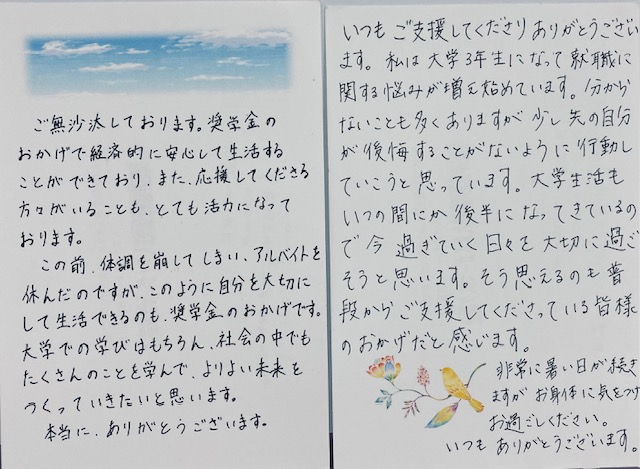 ご無沙汰しております。奨学金の
おかげで経済的に安心して生活する
ことができており、また、応援してくださる
方々がいることも、とても活力になって
おります。
この前、体調を崩してしまい、アルバイトを
休んだのですが、このように自分を大切に
して生活できるのも、奨学金のおかげです。
大学での学びはもちろん、社会の中でも
たくさんのことを学んで、よりよい未来を
つくっていきたいと思います。
本当に、ありがとうございます。
いつもご支援してくださりありがとうござい
ます。私は大学3年生になって就職に
関する悩みが増え始めています。分から
ないことも多くありますが少し先の自分
が後悔することがないように行動し
ていこうと思っています。大学生活も
いつの間にか後半になってきているの
で今過ぎていく日々を大切に過ご
そうと思います。そう思えるのも普
段からご支援してくださっている皆様
のおかげだと感じます。
非常に暑い日が続き
ますがお身体に気をつけ
お過ごしください。
いつもありがとうございます。